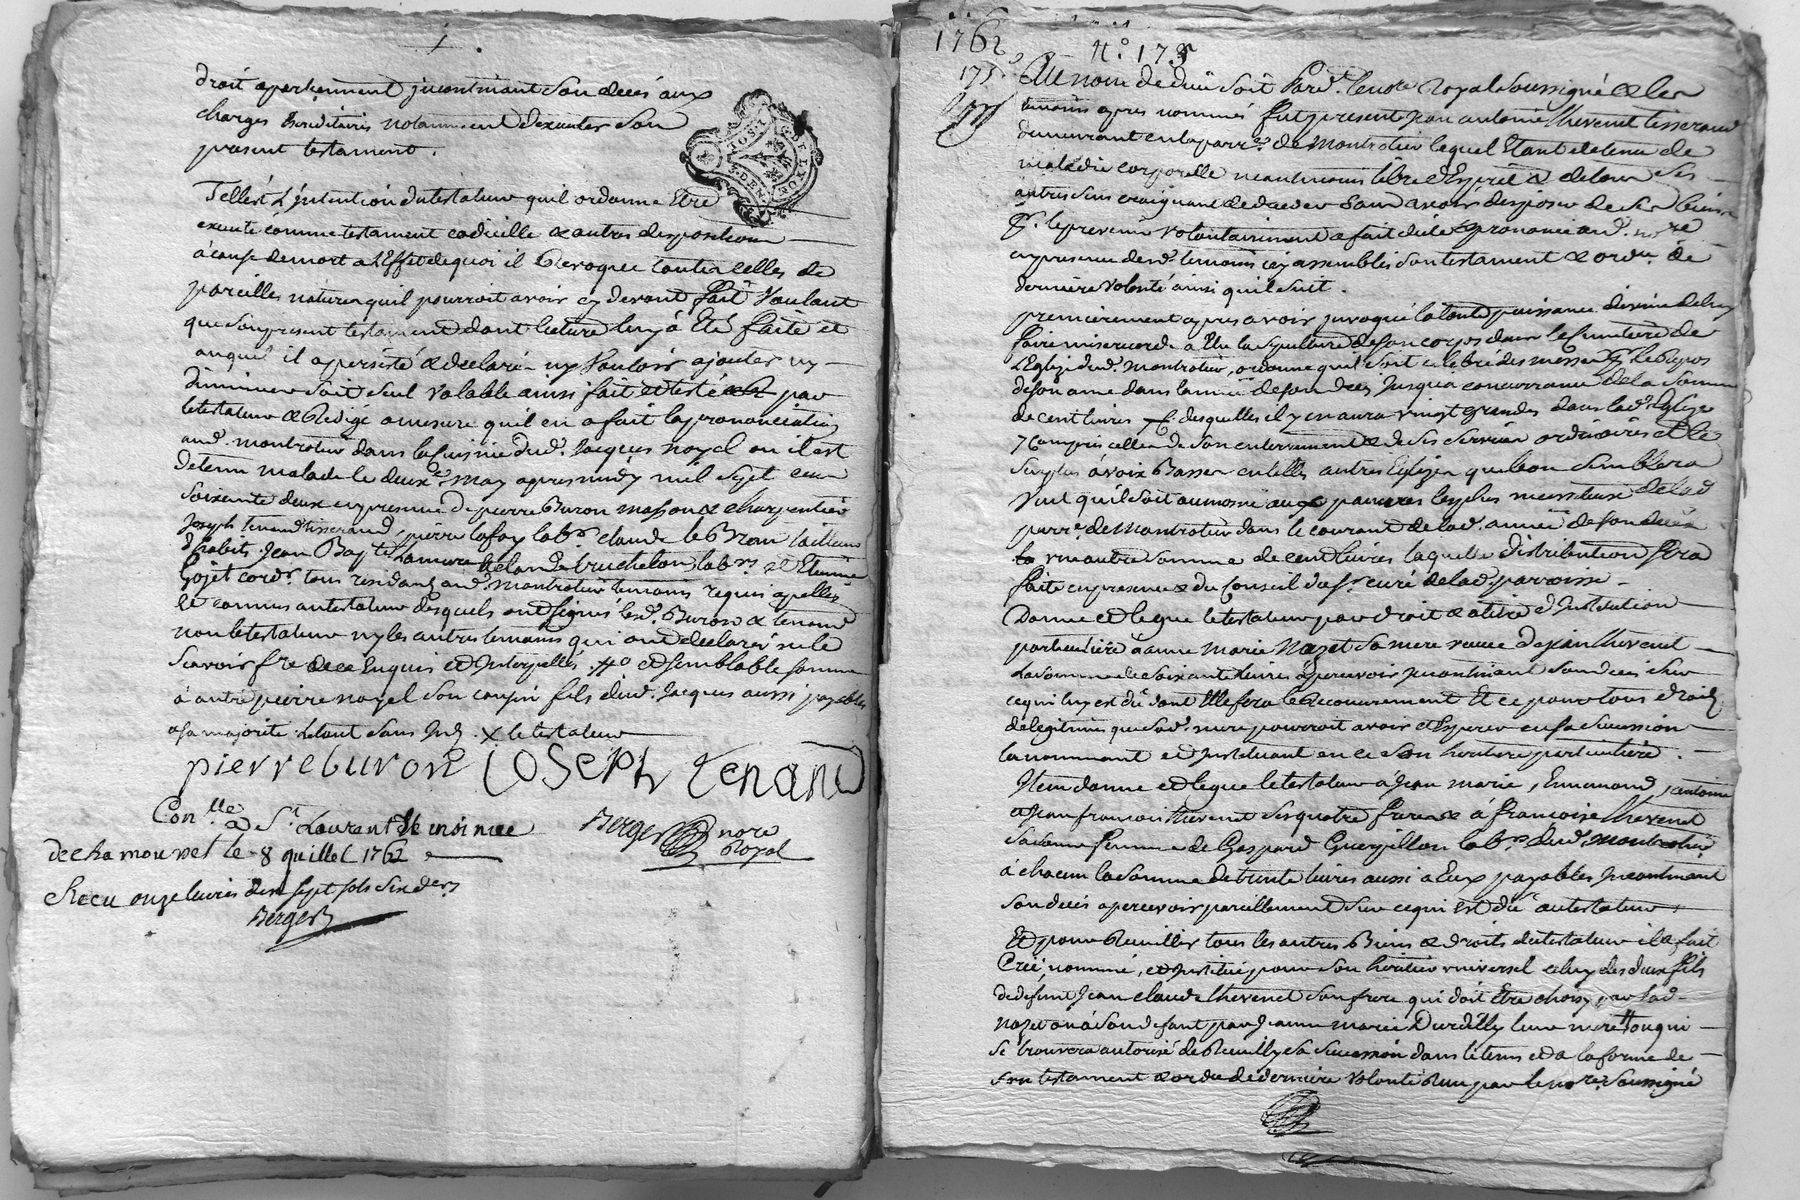 droit apartiennent incontinant son decés aux
charges hereditaires notamment dexecuter son
present testament.
Telle est L'jntention du testateur quil ordonne Etre
executé comme testament codicille & autres disposition
à cause de mort a l'Effet de quoi il Revoque toutes celles de
pareilles natures quil pourroit avoir cy devant fait Voulant
que son present testament dont lecture luy à Eté faite et
auquel il a persisté & declaré ny Vouloir ajouter ny
diminuer soit seul valable ainsi fait et testé par
le testateur & Redigé a mesure quil en a fait la prononciation
aud. montrotier dans la Cuisine dud. Jacques noyel ou il est
detenu malade le deuxe. may apres midy mil sept cent
soixante deux en presence de pierre Buron masson & charpentier
Joseph tenand tisserand, pierre lafay labr. claude le Brun tailleur
d'habits Jean Bapte. Lamure truchelon labrs. et Etienne
Gojet cordr. tous residants aud. montrotier temoins requis apellés
et connus au testateur desquels ont signés led. Buron & tenand
non le testateur ny les autres temoins qui ont declarés ne le
scavoir fre de ce Enquis et Jnterpellés. et semblable somme
à autre pierre noyel son cousin fils dud. Jacques aussi payable
a sa majorité Letout sans Jnt. X le testateur
pierre buron joseph tenand
Conlle. a St. Laurent
Berger nore Royal
de chamousset le 8 Juillet 1762
Recu onze livres dix sept sols six ders
Berger
1762
N.° 175
175.e
Au nom de dieu soit Pard. le nore Royal soussigné & les
temoins apres nommés fut present Jean antoine Thevenet tisserand
demeurant en la parre. de Montrotier lequel Etant detenu de
maladie corporelle neantmoins libre d'Esprit & de tous ses
autres sens craignant de deceder sans avoir disposer de ses Biens
Pr. le prevenir volontairement a fait dicté & prononcé aud. nore
en presence desd. temoins icy assemblés son testament & ordre. de
derniere volonté ainsi quil suit.
premierement apres avoir jnvoqué la toute puissance divine de luy
faire misericorde a Elu la sepulture de son corps dans le Cimetiere de
L'Eglize dud. Montrotier, ordonne quil soit celebré des messes pr. le Repos
de son ame dans l'année de son deces jusqua concurrance de la somme
de cent livres desquelles il y en aura vingt grandes dans lad. Eglize
y Compris celles de son enterrement & de ses services ordinaires et le
surplus à voix Basse en telles autres Eglizes que bon semblera
Veut qu'il soit aumosné aux pauvres les plus necessiteux de lad
parre. de Montrotier dans le courant de lad. année de son decés
une autre somme de cent livres laquelle distribution sera
faite en presence & du Conseil du sr. curé de lad. parroisse
Donne et legue le testateur par droit & a titre d'Institution
particuliere à anne Marie Nazet sa mere veuve de Jean Thevenet
La somme de soixante livres à percevoir jncontinant son deces sur
ce qui luy est dû dont Elle fera le Recouvrement Et ce pour tous droits
de legitimes que sad. mere pourroit avoir et Esperer en sa succession
la nommant et Jnstituant en ce son heritiere particuliere.
Item donne et legue le testateur à Jean marie, Ennemond, antoine
et Jean francois thevenet ses quatre freres & à francoise Thevenet
sa soeur femme de Gaspard Guerpillon labr. dud. Montrotier
à chacun la somme de trente livres aussi a Eux payables jncontinant
son decés a percevoir pareillement sur ce qui Est dû au testateur.
Et pour Recuillir tous les autres Biens & droits du testateur il a fait
Créé, nommé, et Jnstitué pour son heritier universel celuy des deux fils
de defunt Jean claude thevenet son frere qui doit Etre choisy par lad.
nazet ou à son defaut par Jeanne marie Durdilly leur mere ou qui
se trouvera autorisé de Recuillir sa succession dans le tems et à la forme de
son testament & ordre de derniere volonté Recu par le nore. soussigné